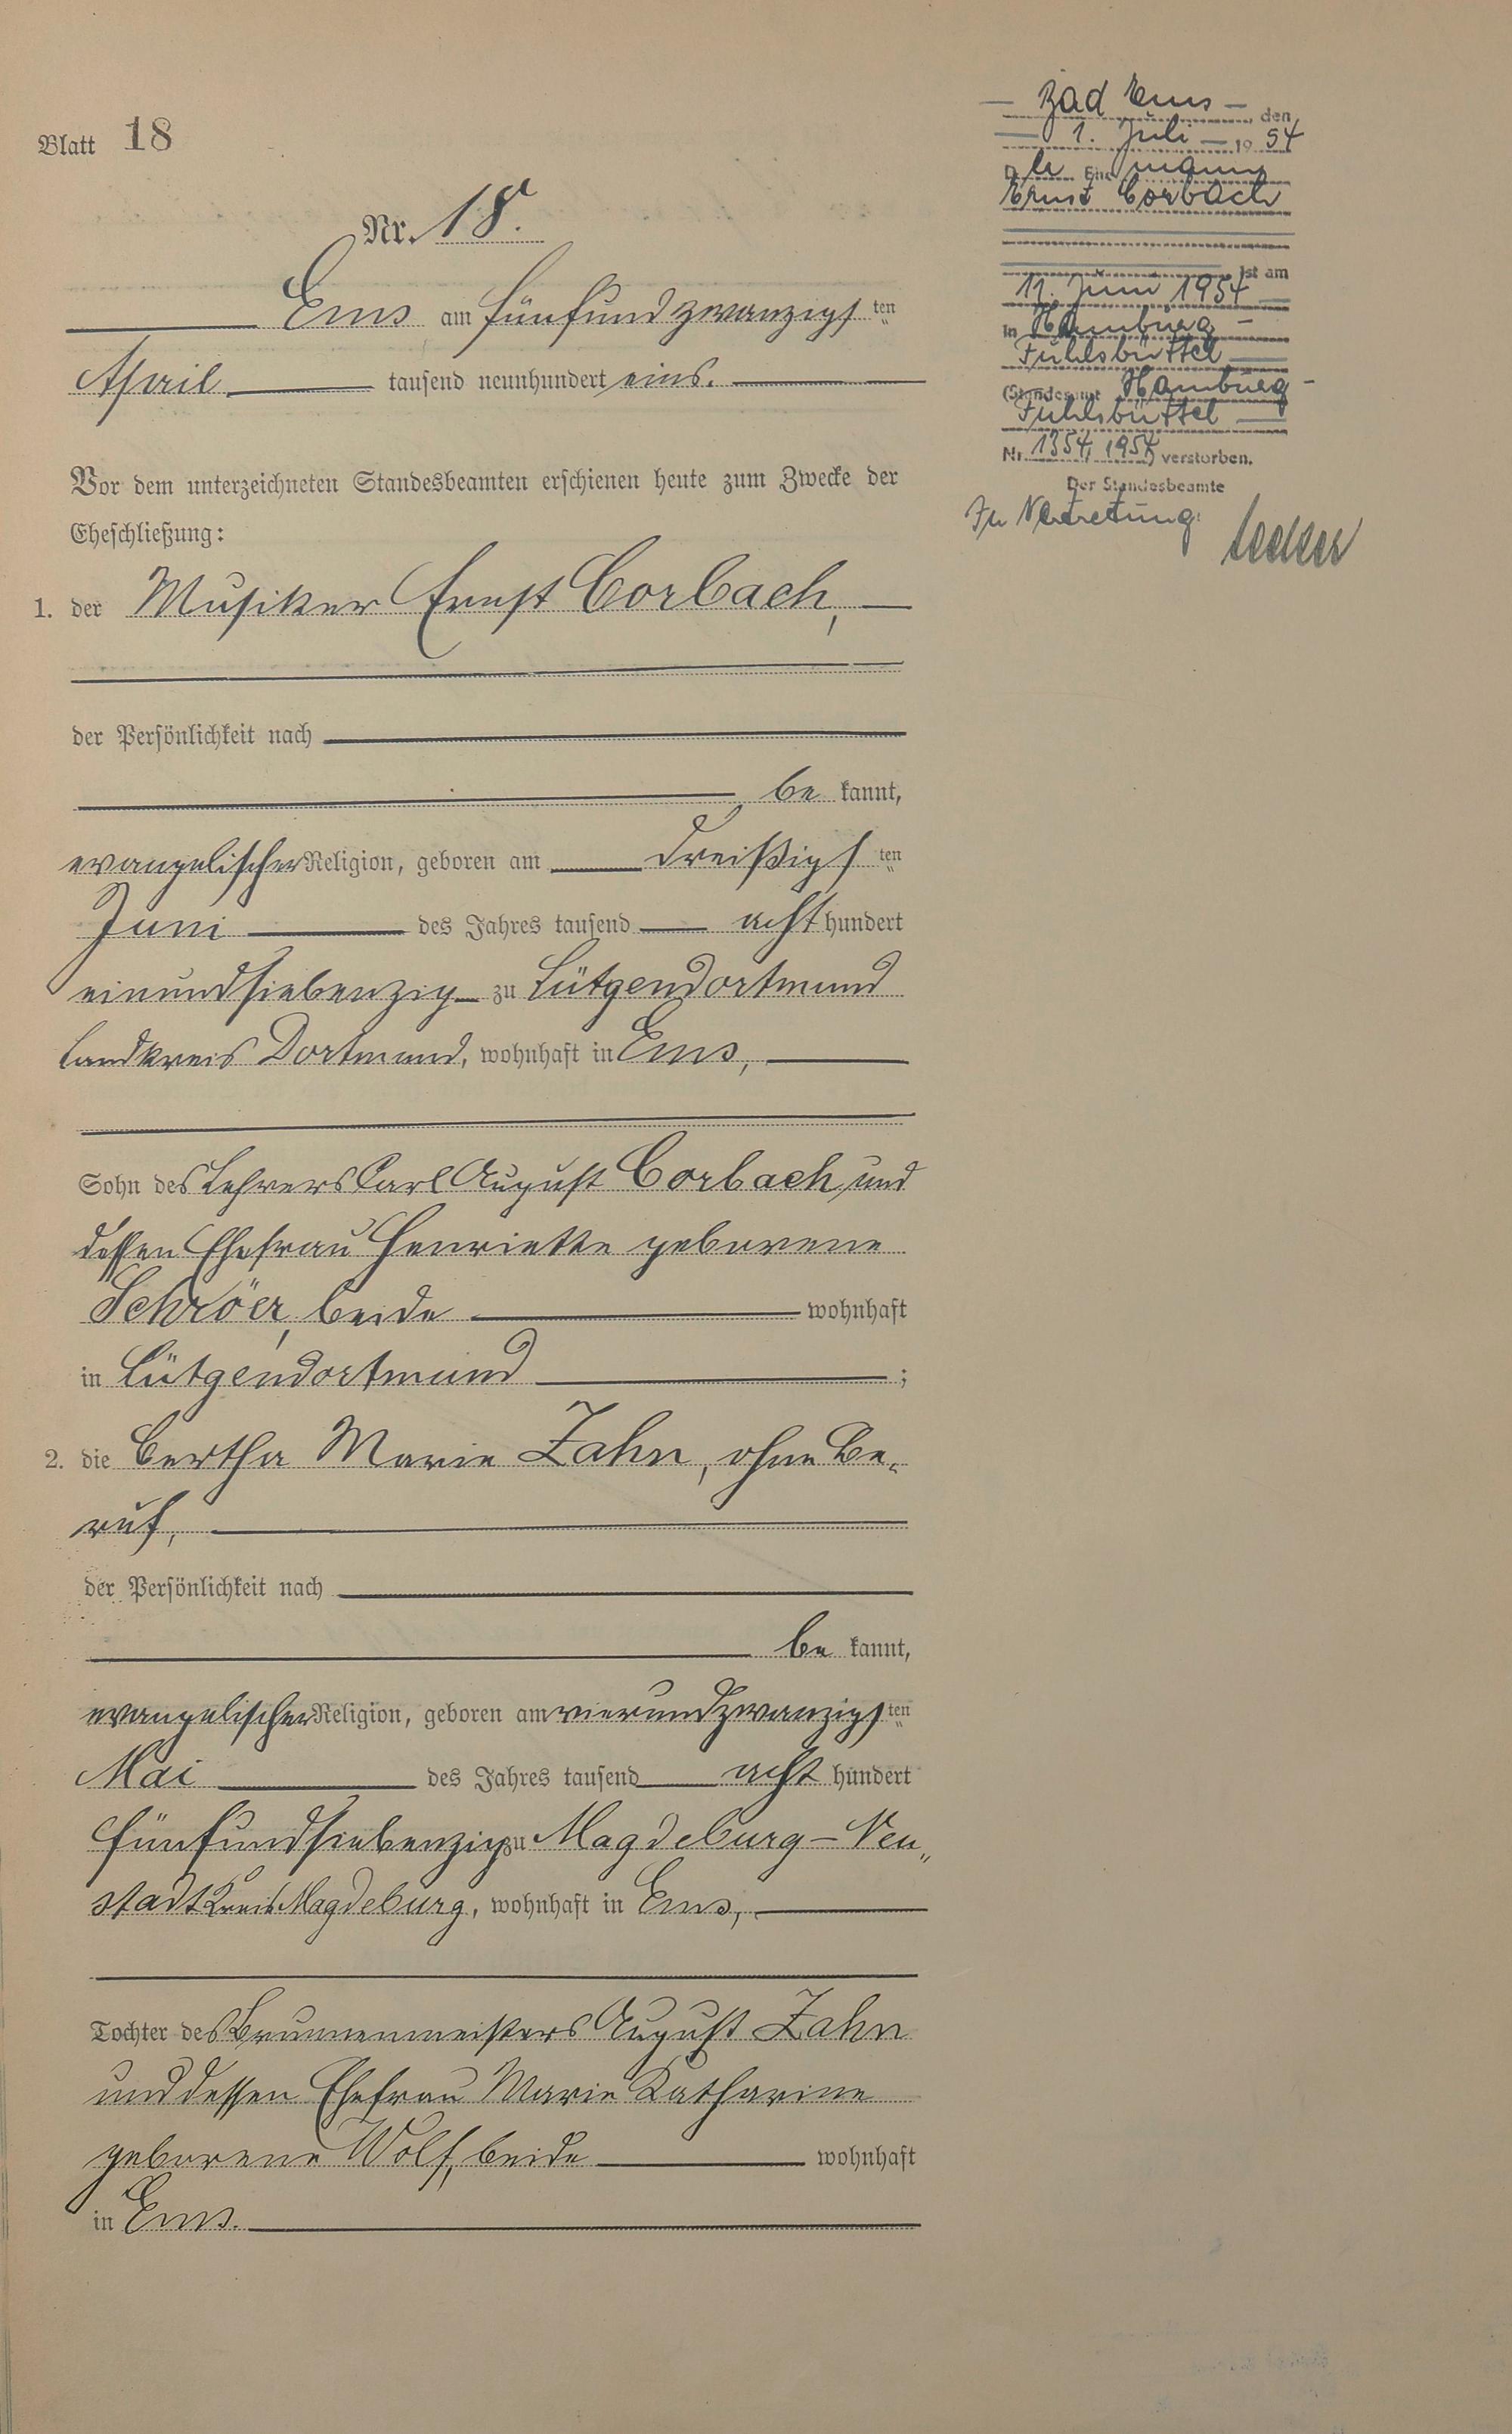 Blatt 18
Nr. 18.
Ems am fünfundzwanzigsten
April tausend neunhundert eins.
Vor dem unterzeichneten Standesbeamten erschienen heute zum Zwecke der
Eheschließung:
1. der Musiker Ernst Corbach,
der Persönlichkeit nach
bekannt,
evangelischer Religion, geboren am dreißigsten
Juni des Jahres tausend achthundert
einundsiebenzig zu Lütgendortmund
Landkreis Dortmund, wohnhaft in Ems,
Sohn des Lehrers Carl August Corbach und
dessen Ehefrau Henriette geborene
Schröer, beide wohnhaft
in Lütgendortmund ;
2. die Bertha Marie Zahn, ohne Be-
ruf,
der Persönlichkeit nach
bekannt,
evangelischer Religion, geboren am vierundzwanzigsten
Mai des Jahres tausend achthundert
fünfundsiebenzig zu Magdeburg-Neu-
stadt Kreis Magdeburg, wohnhaft in Ems,
Tochter des Brunnenmeisters August Zahn
und dessen Ehefrau Marie Katharine
geborene Wolf, beide wohnhaft
in Ems.
Bad Ems, den
1. Juli 1954
Der Ehemann
Ernst Corbach
ist am
11. Juni 1954
in Hamburg-
Fuhlsbüttel
(Standesamt Hamburg-
Fuhlsbüttel
Nr. 1354/1954) verstorben.
Der Standesbeamte
In Vertretung: